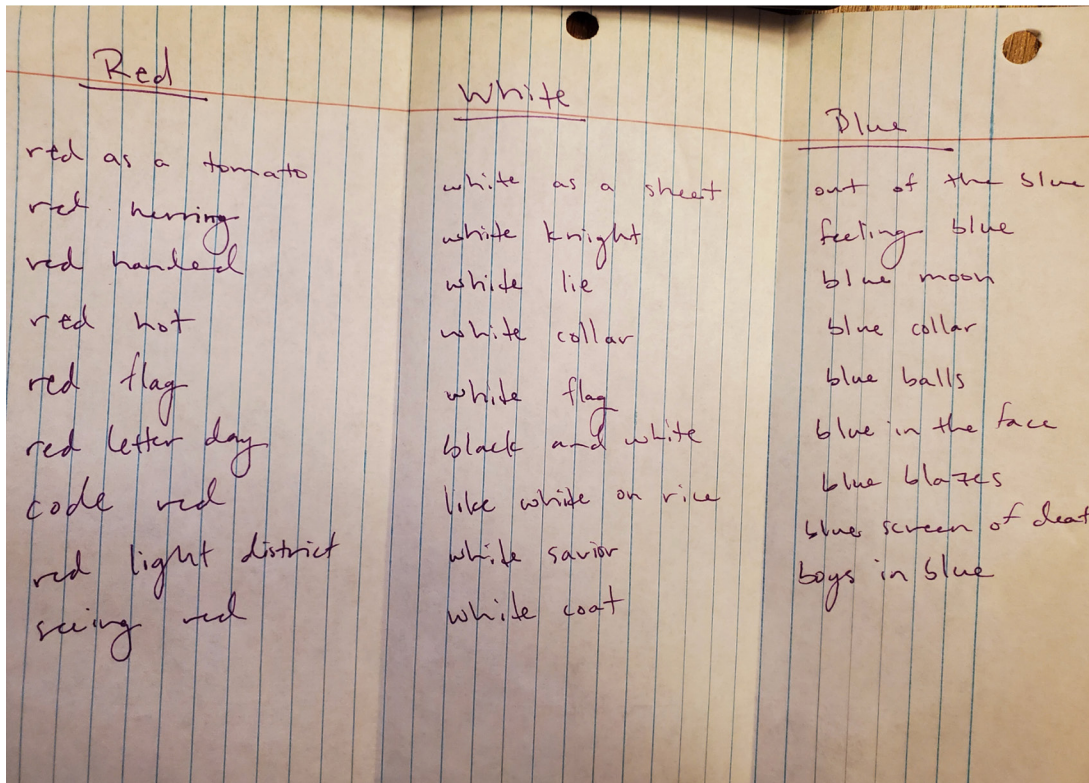 Red
red as a tomato
red herring
red handed
red hot
red flag
red letter day
code red
red light district
seeing red
White
white as a sheet
white knight
white lie
white collar
white flag
black and white
like white on rice
white savior
white coat
Blue
out of the blue
feeling blue
blue moon
blue collar
blue balls
blue in the face
blue blazes
blue screen of deat
boys in blue